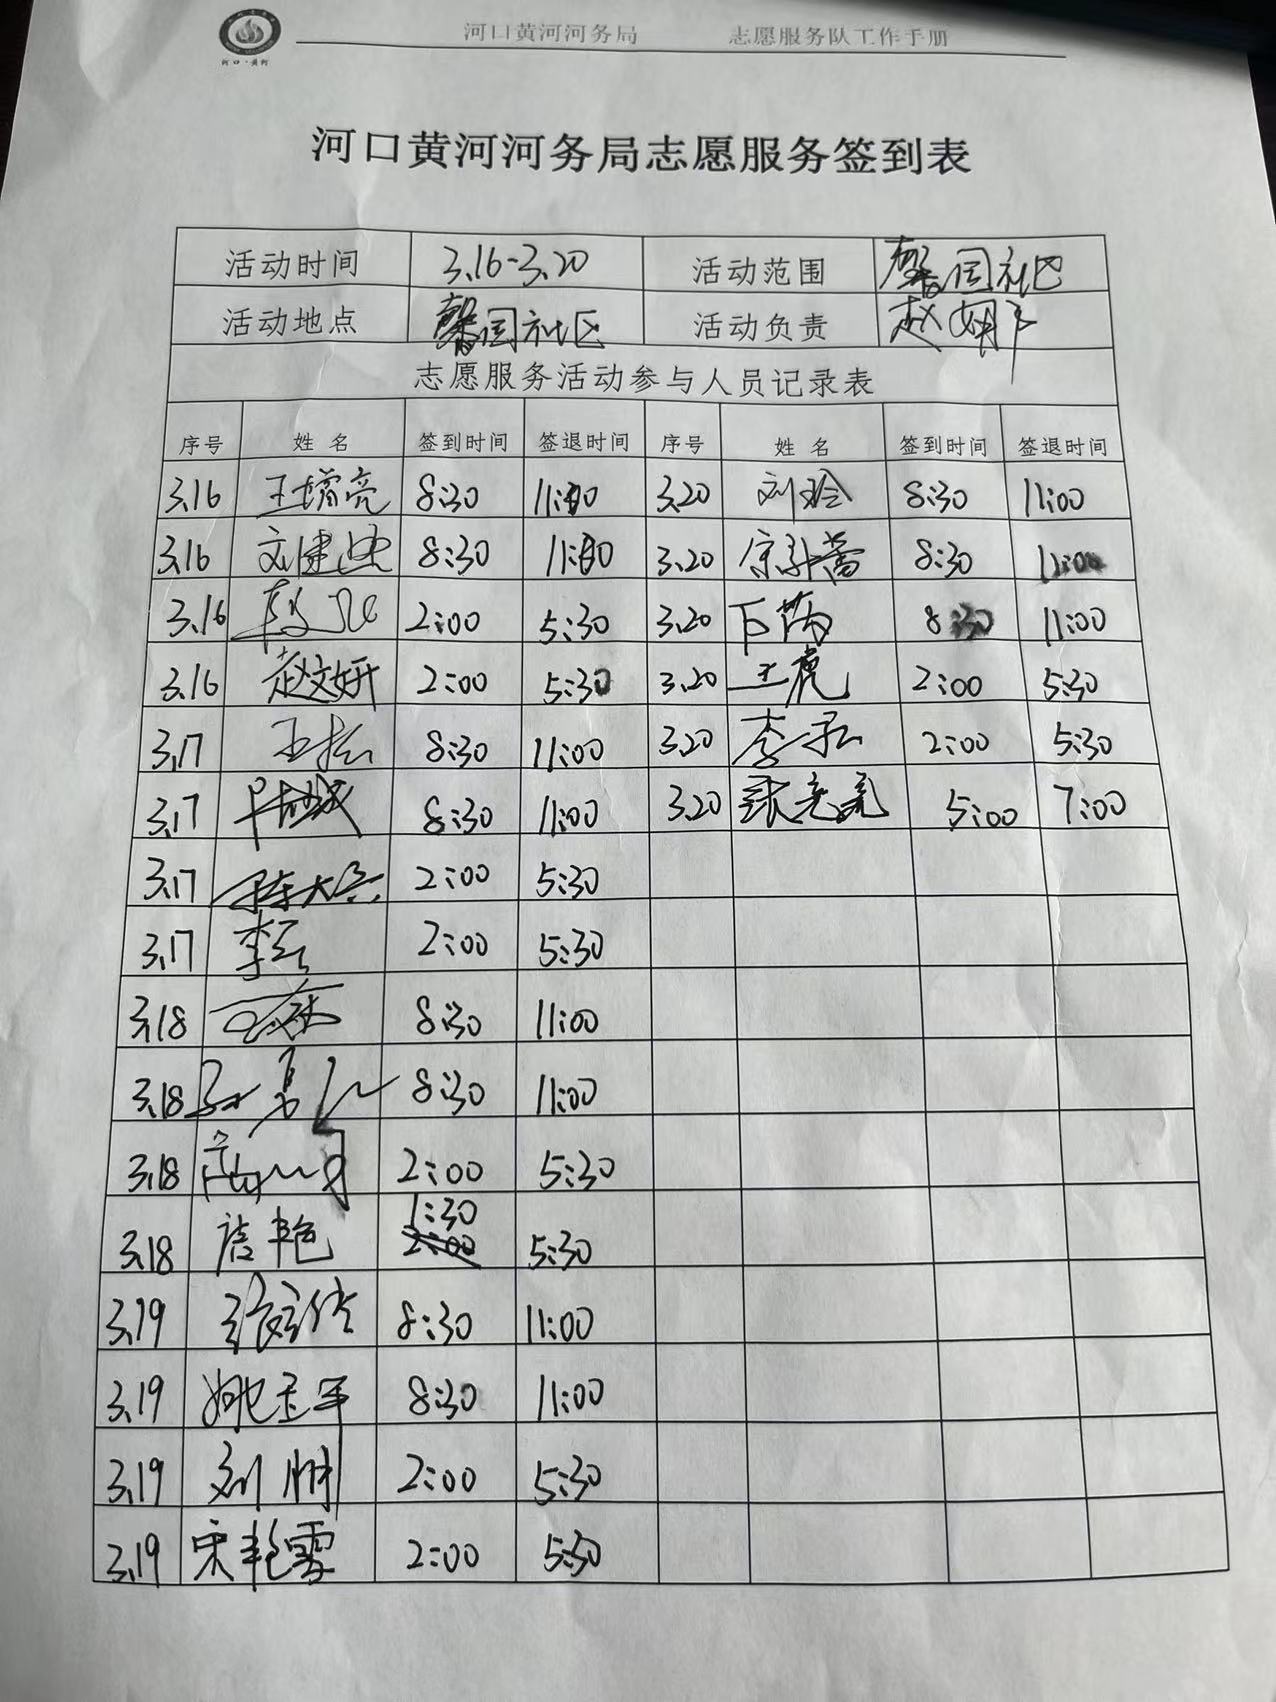 河口·黄河
河口黄河河务局 志愿服务队工作手册
河口黄河河务局志愿服务签到表
活动时间 3.16-3.20 活动范围 馨园社区
活动地点 馨园社区 活动负责 赵
志愿服务活动参与人员记录表
序号 姓名 签到时间 签退时间 序号 姓名 签到时间 签退时间
3.16 王增亮 8:30 11:00 3.20 刘玲 8:30 11:00
3.16 刘建 8:30 11:00 3.20 8:30 11:00
3.16 2:00 5:30 3.20 8:30 11:00
3.16 赵文妍 2:00 5:30 3.20 王虎 2:00 5:30
3.17 王 8:30 11:00 3.20 李 2:00 5:30
3.17 8:30 11:00 3.20 张亮亮 5:00 7:00
3.17 2:00 5:30
3.17 李 2:00 5:30
3.18 8:30 11:00
3.18 8:30 11:00
3.18 2:00 5:30
3.18 艳 1:30 5:30
3.19 8:30 11:00
3.19 姚 军 8:30 11:00
3.19 刘 2:00 5:30
3.19 宋艳雪 2:00 5:30